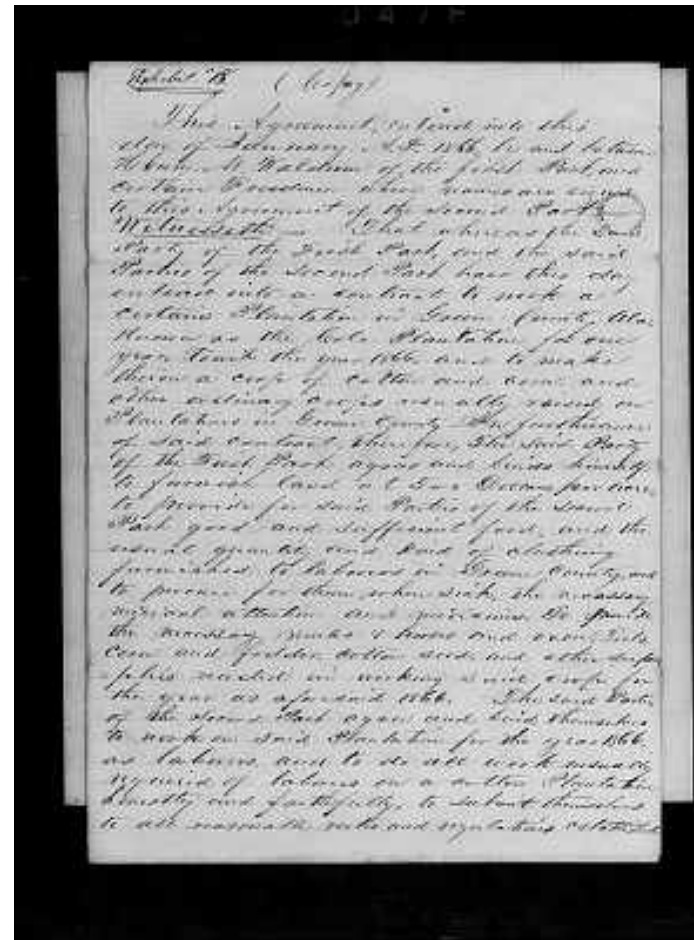 Exhibit "B" (Copy)
This Agreement, entered into this
day of January A.D. 1866 by and between
M. Waldron of the first Part, and
certain Freedmen whose names are signed
to this Agreement of the Second Part
Witnesseth That whereas the said
Party of the First Part, and the said
Parties of the Second Part have this day
entered into a contract to work a
certain Plantation in Green County, Ala.
Known as the Cole Plantation for one
year, to wit the year 1866 and to make
thereon a crop of cotton and corn and
other ordinary crops usually raised on
Plantations in Green County In furtherance
of said contract, therefore, The said Party
of the First Part agrees and binds himself
to furnish land at Two Dollars per acre,
to provide for said Parties of the Second
Part good and sufficient food, and the
usual quantity and kind of clothing
furnished to laborers in Green County, and
to procure for them, when sick, the necessary
medical attention and medicines. To furnish
the necessary mules & horses and oxen, tools
corn and fodder, cotton seed and other sup
plies needed in working said crop for
the year as aforesaid 1866. The said Parties
of the Second Part agree and bind themselves
to work on said Plantation for the year 1866
as laborers, and to do all work usually
required of laborers on a cotton Plantation
honestly and faithfully, to submit themselves
to all reasonable rules and regulations established